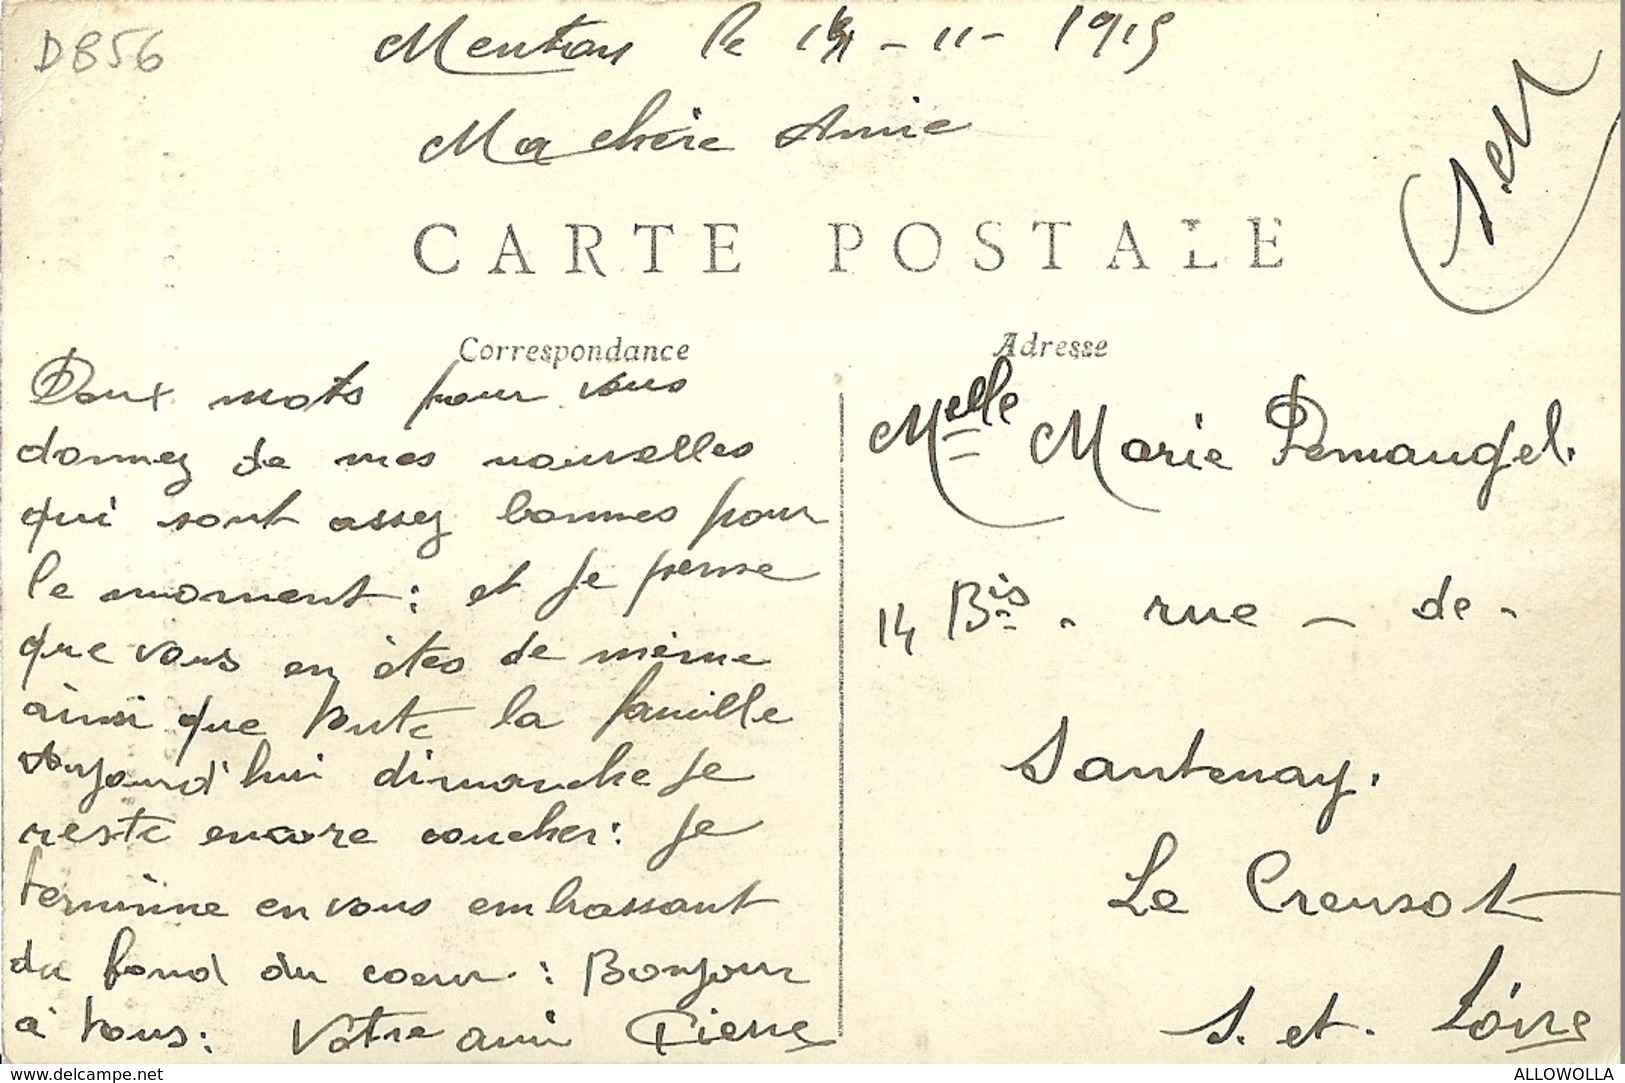 D856
Menton le 14-11-1915
Ma chère Amie
CARTE POSTALE
Correspondance
Deux mots pour vous
donnez de mes nouvelles
qui sont assez bonnes pour
le moment : et je pense
que vous en êtes de même
ainsi que toute la famille
Aujourd'hui dimanche je
reste encore coucher : je
termine en vous embrassant
du fond du coeur : Bonjour
à tous : Votre ami Pierre
Adresse
Melle Marie Demaugel.
14 Bis - rue - de -
Santenay.
Le Creusot
S. et. Loire
delcampe.net
ALLOWOLLA